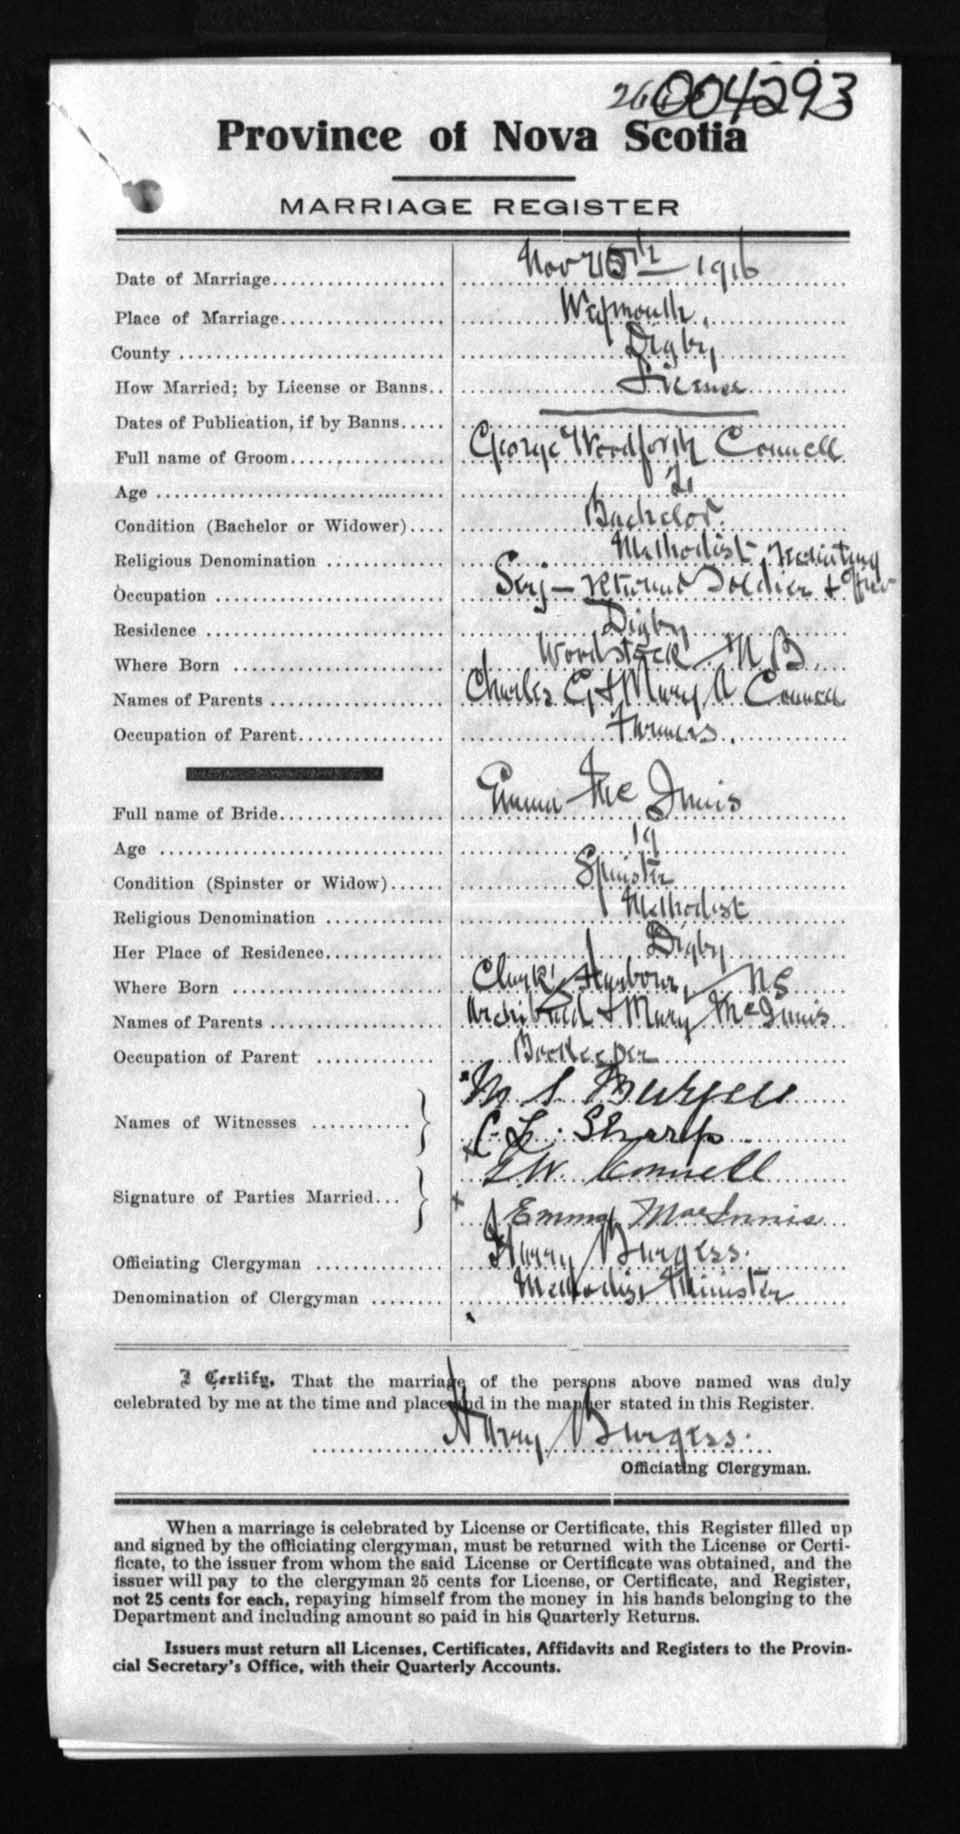 004293
Province of Nova Scotia
MARRIAGE REGISTER
Date of Marriage Nov 15th 1916
Place of Marriage Weymouth,
County Digby
How Married; by License or Banns License
Dates of Publication, if by Banns
Full name of Groom George Woodforth Connell
Age 21
Condition (Bachelor or Widower) Bachelor.
Religious Denomination Methodist
Occupation Serj - returned Soldier + Recruiting Officer
Residence Digby
Where Born Woodstock N B.
Names of Parents Charles G + Mary A Connell
Occupation of Parent Farmers.
Full name of Bride Emma McInnis
Age 19
Condition (Spinster or Widow) Spinster
Religious Denomination Methodist
Her Place of Residence Digby
Where Born Clarks Harbour, NS
Names of Parents Archibald + Mary McInnis
Occupation of Parent Bookeeper
Names of Witnesses M S Burgess
C. L. Sharp.
Signature of Parties Married G W Connell
Emma MacInnis
Officiating Clergyman Harry Burgess.
Denomination of Clergyman Methodist Minister
I Certify, That the marriage of the persons above named was duly
celebrated by me at the time and place and in the manner stated in this Register.
Harry Burgess.
Officiating Clergyman.
When a marriage is celebrated by License or Certificate, this Register filled up
and signed by the officiating clergyman, must be returned with the License or Certi-
ficate, to the issuer from whom the said License or Certificate was obtained, and the
issuer will pay to the clergyman 25 cents for License, or Certificate, and Register,
not 25 cents for each, repaying himself from the money in his hands belonging to the
Department and including amount so paid in his Quarterly Returns.
Issuers must return all Licenses, Certificates, Affidavits and Registers to the Provin-
cial Secretary's Office, with their Quarterly Accounts.